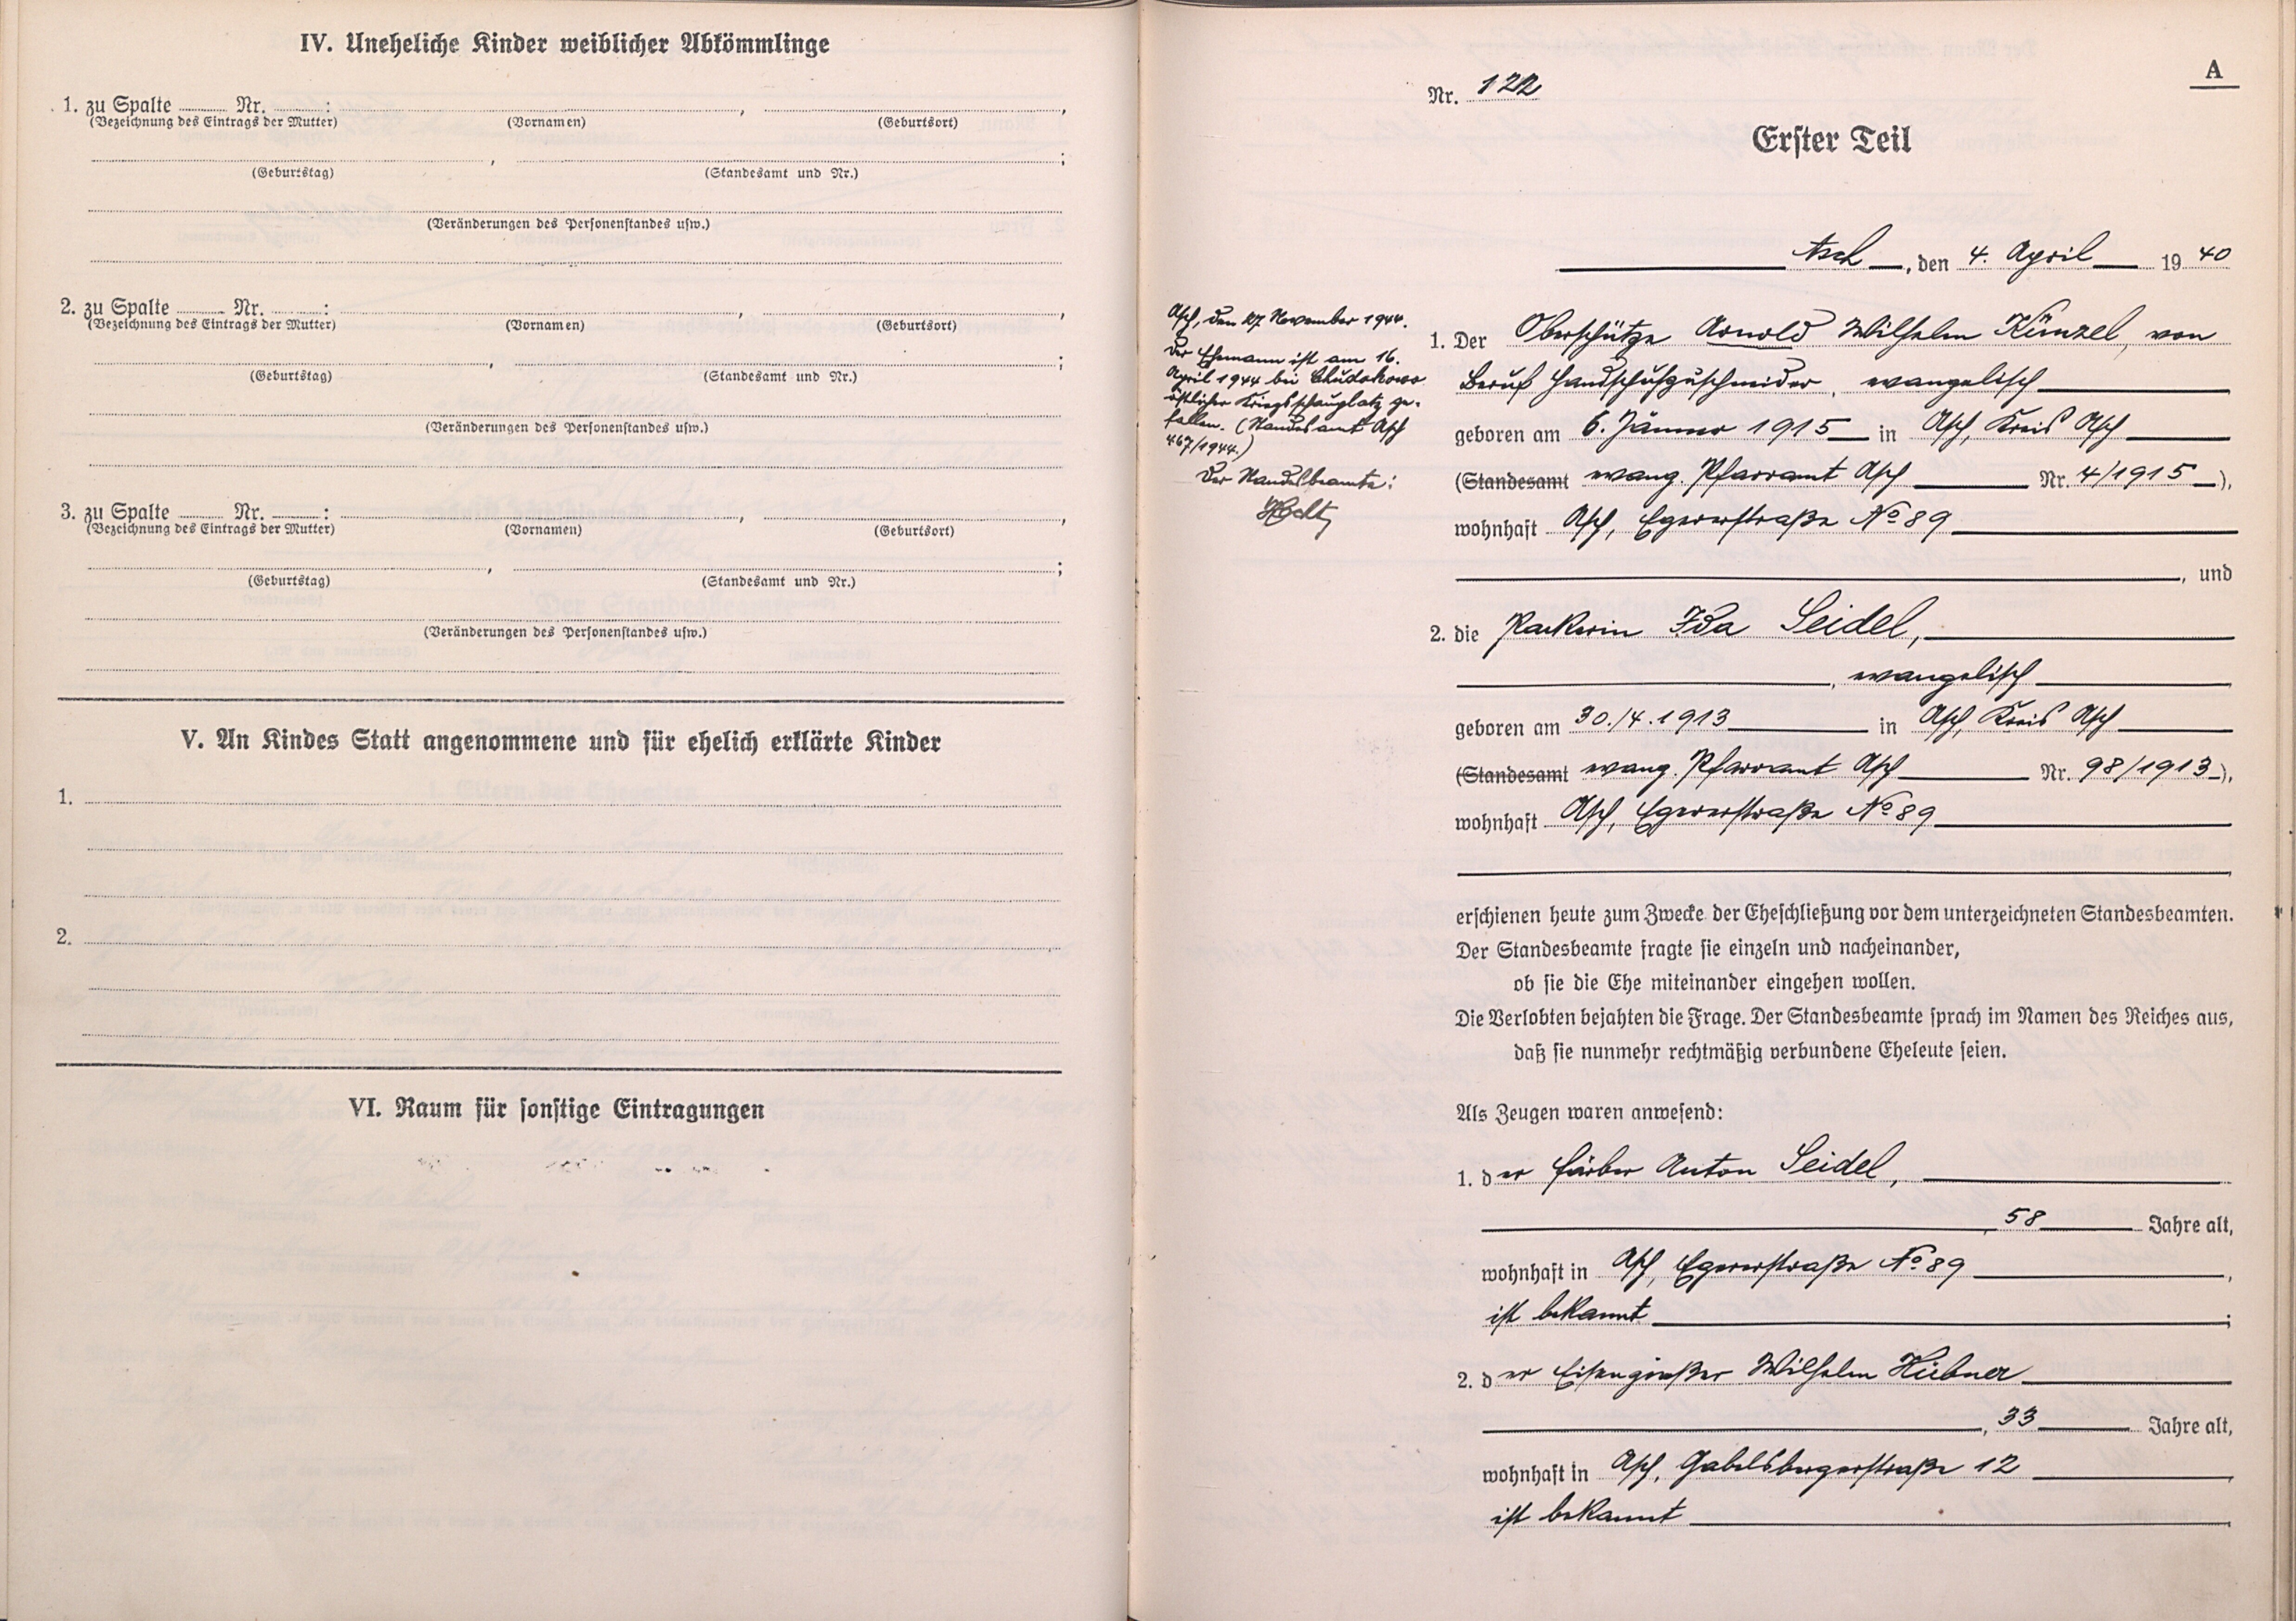 IV. Uneheliche Kinder weiblicher Abkömmlinge
1. zu Spalte ........ Nr. ........ :
(Bezeichnung des Eintrags der Mutter) (Vornamen) , (Geburtsort) ,
(Geburtstag) , (Standesamt und Nr.) ;
(Veränderungen des Personenstandes usw.)
2. zu Spalte ........ Nr. ........ :
(Bezeichnung des Eintrags der Mutter) (Vornamen) , (Geburtsort) ,
(Geburtstag) , (Standesamt und Nr.) ;
(Veränderungen des Personenstandes usw.)
3. zu Spalte ........ Nr. ........ :
(Bezeichnung des Eintrags der Mutter) (Vornamen) , (Geburtsort) ,
(Geburtstag) , (Standesamt und Nr.) ;
(Veränderungen des Personenstandes usw.)
V. An Kindes Statt angenommene und für ehelich erklärte Kinder
1.
2.
VI. Raum für sonstige Eintragungen
A
Nr. 122
Erster Teil
Asch, den 4. April 1940
Asch, den 27. November 1944.
Der Ehemann ist am 16.
April 1944 bei Chudokowo
östlicher Kriegsschauplatz ge-
fallen. (Standesamt Asch
467/1944.)
Der Standesbeamte:
1. Der Oberschütze Arnold Wilhelm Künzel, von
Beruf Handschuhzuschneider, evangelisch
geboren am 6. Jänner 1915 in Asch, Kreis Asch
(Standesamt evang. Pfarramt Asch Nr. 4/1915),
wohnhaft Asch, Egererstraße No 89
, und
2. die Packerin Ida Seidel,
, evangelisch
geboren am 30./4.1913 in Asch, Kreis Asch
(Standesamt evang. Pfarramt Asch Nr. 98/1913),
wohnhaft Asch, Egererstraße No 89
erschienen heute zum Zwecke der Eheschließung vor dem unterzeichneten Standesbeamten.
Der Standesbeamte fragte sie einzeln und nacheinander,
ob sie die Ehe miteinander eingehen wollen.
Die Verlobten bejahten die Frage. Der Standesbeamte sprach im Namen des Reiches aus,
daß sie nunmehr rechtmäßig verbundene Eheleute seien.
Als Zeugen waren anwesend:
1. der Färber Anton Seidel,
, 58 Jahre alt,
wohnhaft in Asch, Egererstraße No 89,
ist bekannt ;
2. der Eisengießer Wilhelm Hübner
, 33 Jahre alt,
wohnhaft in Asch, Gabelsbergerstraße 12,
ist bekannt